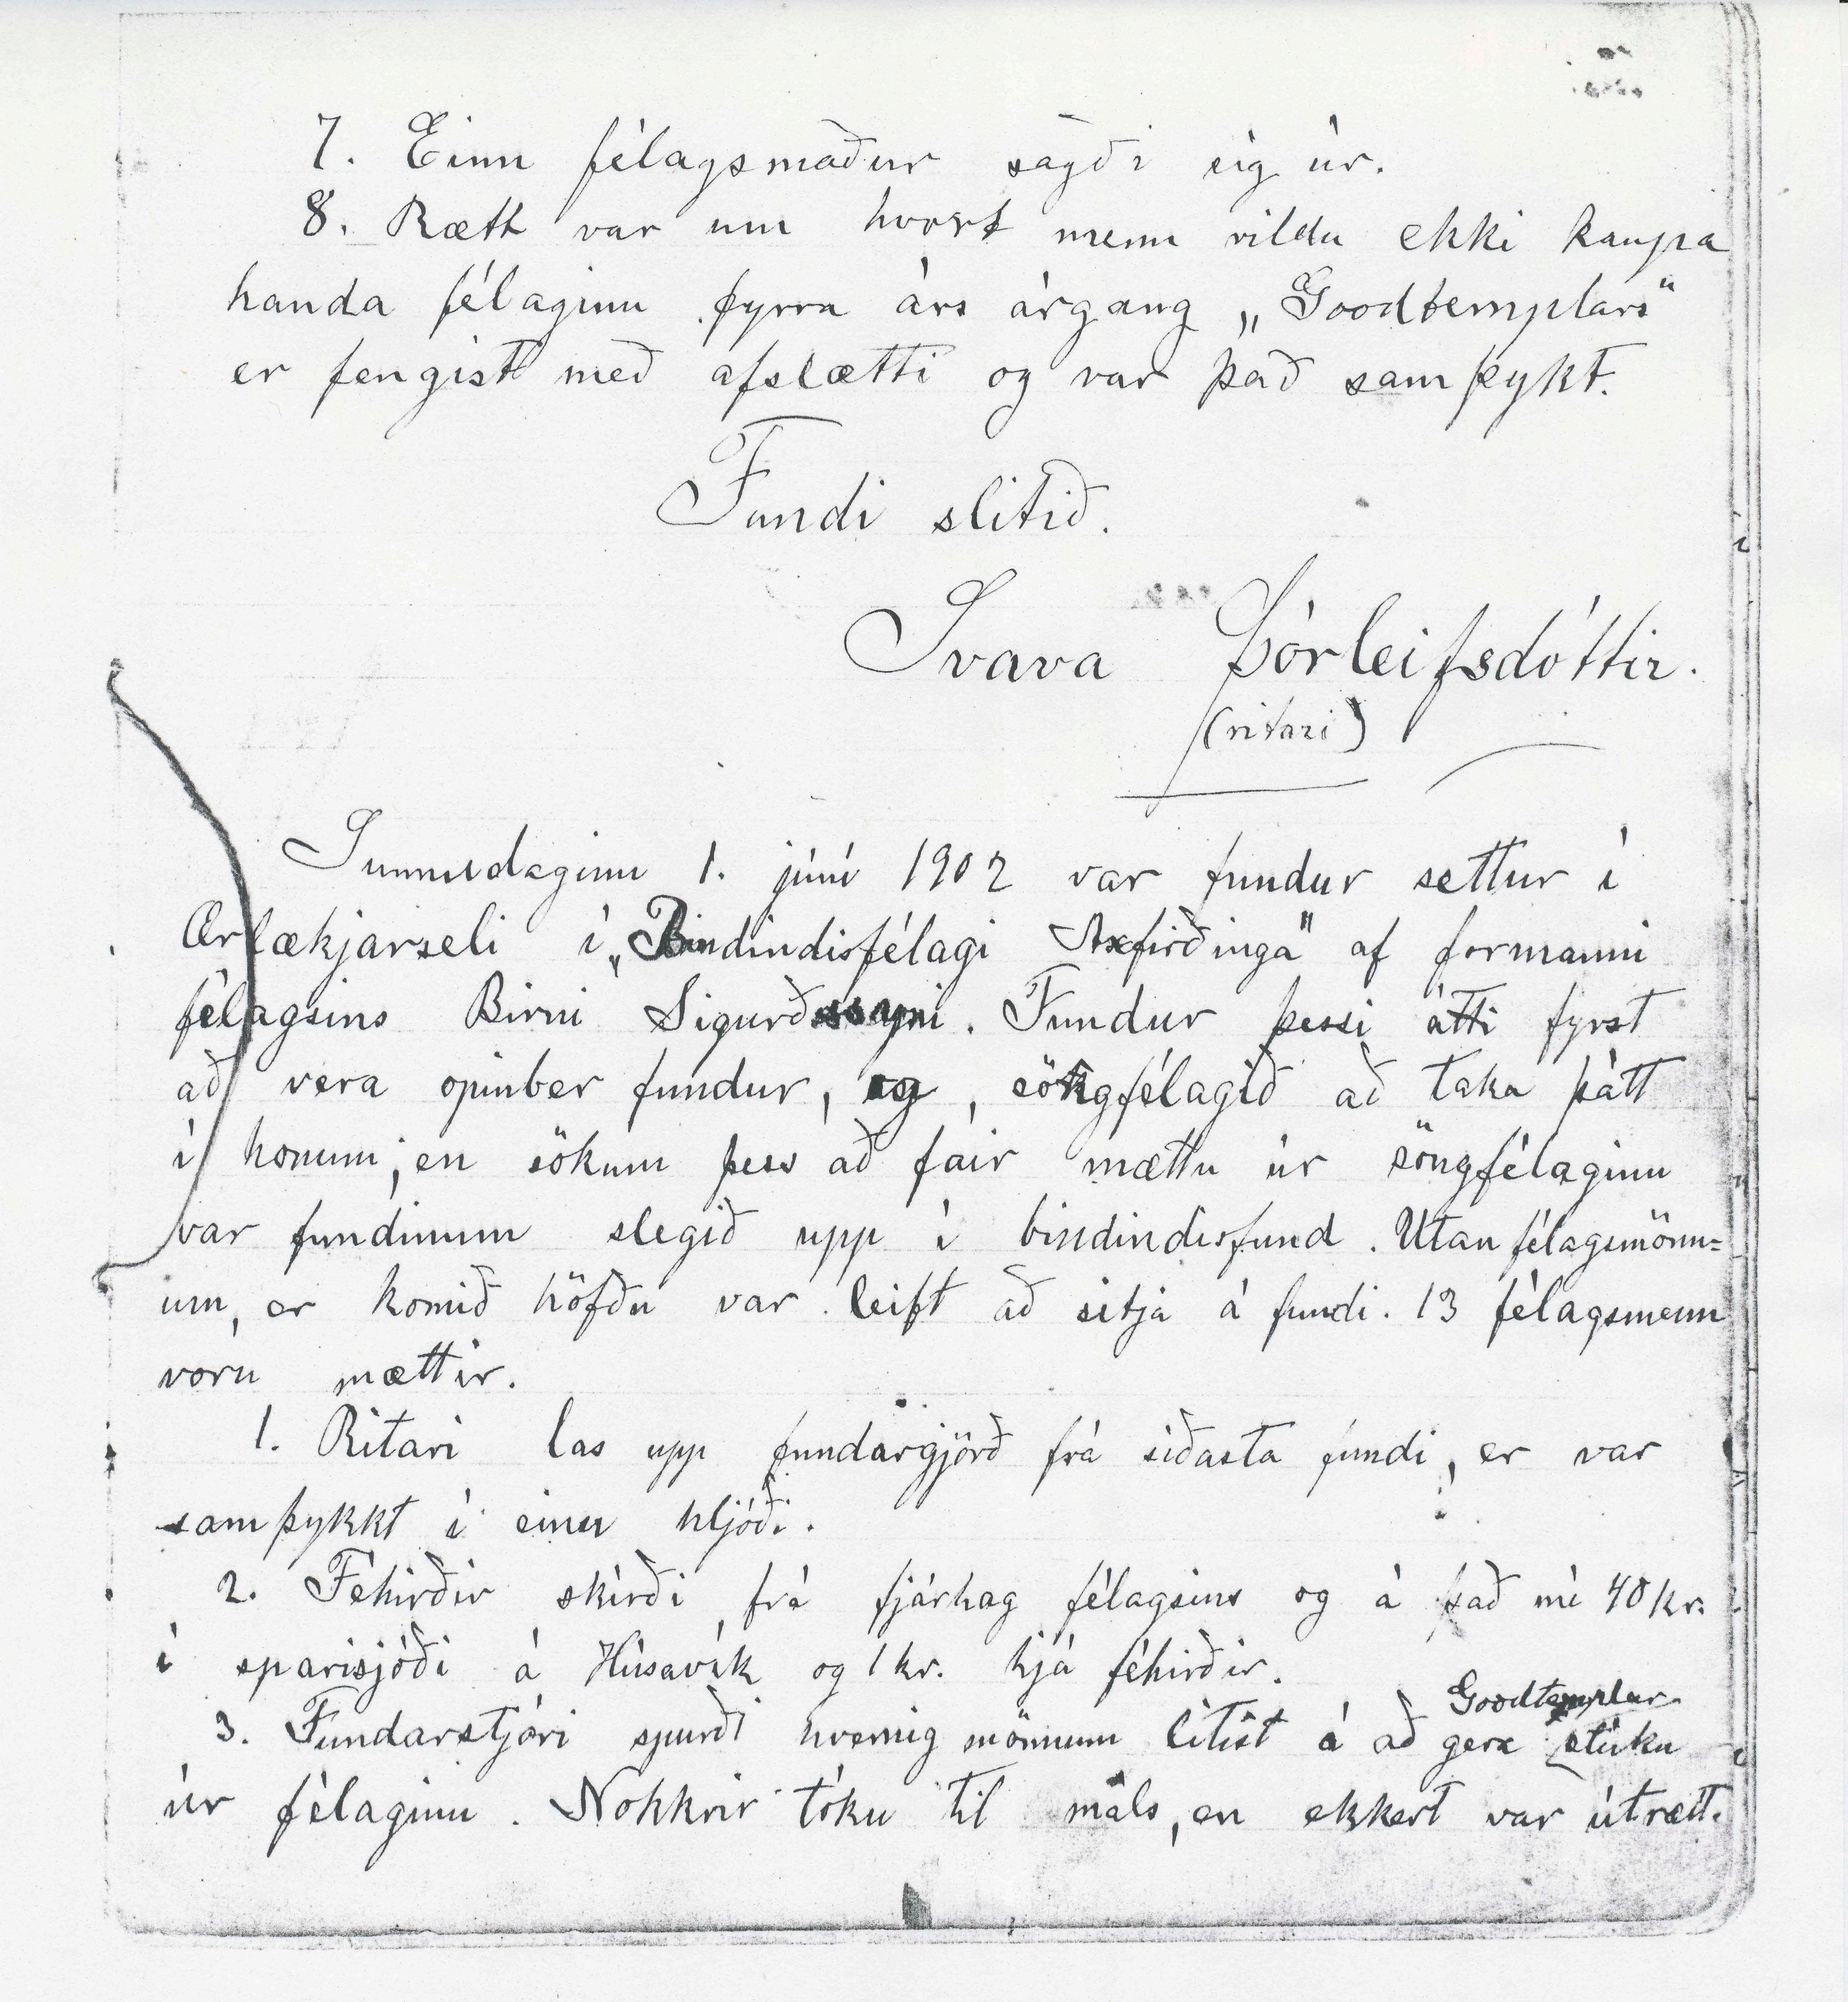 7. Einn félagsmaður sagði sig úr.
8. Rætt var um hvort menn vildu ekki kaupa
handa félaginu fyrra árs árgang „Goodtemplars"
er fengist með afslætti og var það samþykt.
Fundi slitið.
Svava Þórleifsdóttir.
(ritari)
Sunnudaginn 1. júní 1902 var fundur settur í
Ærlækjarseli í „Bindindisfélagi Axfirðinga" af formanni
félagsins Birni Sigurðssyni. Fundur þessi átti fyrst
að vera opinber fundur, og, söngfélagið að taka þátt
í honum; en sökum þess að fáir mættu úr söngfélaginu
var fundinum slegið upp í bindindisfund. Utanfélagsmönn=
um, er komið höfðu var leift að sitja á fundi. 13 félagsmenn
voru mættir.
1. Ritari las upp fundargjörð frá síðasta fundi, er var
samþykkt í einu hljóði.
2. Féhirðir skírði frá fjárhag félagsins og á það nú 40 kr.
í sparisjóði á Húsavík og 1 kr. hjá féhirðir.
3. Fundarstjóri spurði hvernig mönnum litist á að gera Goodtemplar stúku
úr félaginu. Nokkrir tóku til máls, en ekkert var útrætt.